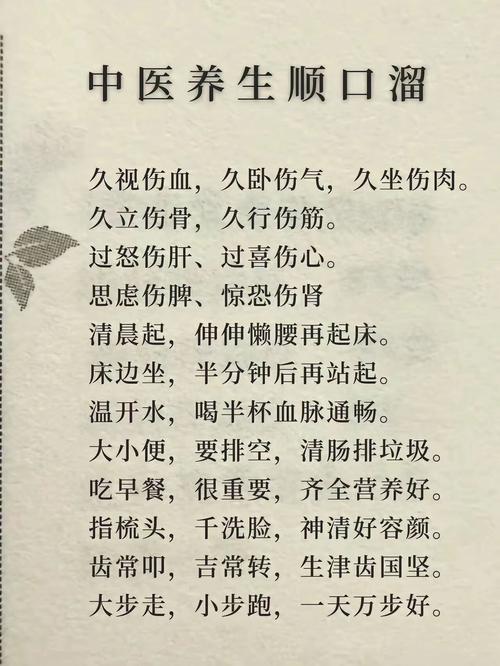 中医养生顺口溜
久视伤血，久卧伤气，久坐伤肉。
久立伤骨，久行伤筋。
过怒伤肝、过喜伤心。
思虑伤脾、惊恐伤肾
清晨起，伸伸懒腰再起床。
床边坐，半分钟后再站起。
温开水，喝半杯血脉通畅。
大小便，要排空，清肠排垃圾。
吃早餐，很重要，齐全营养好。
指梳头，千洗脸，神清好容颜。
齿常叩，吉常转，生津齿国坚。
大步走，小步跑，一天万步好。